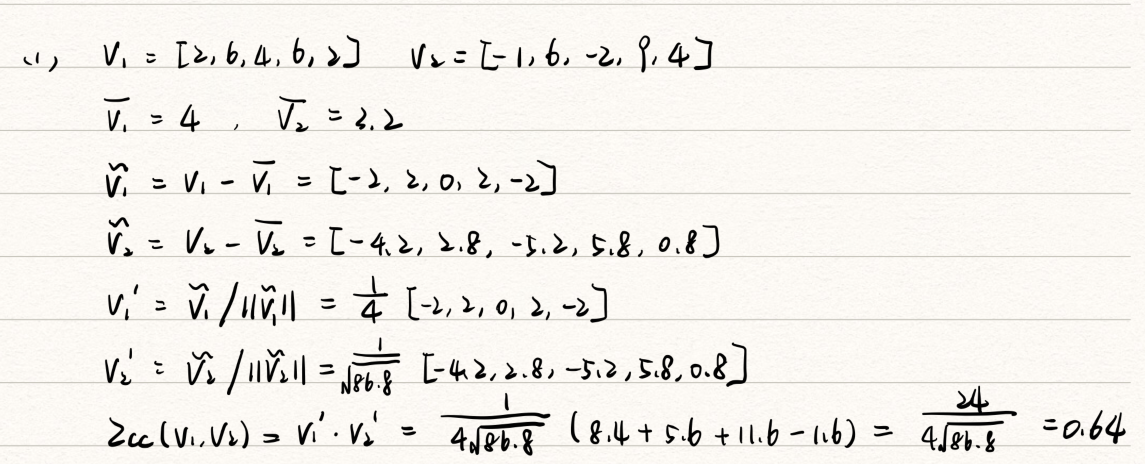 (1) V₁ = [2, 6, 4, 6, 2] V₂ = [-1, 6, -2, 9, 4]
V̅₁ = 4 , V̅₂ = 3.2
Ṽ₁ = V₁ - V̅₁ = [-2, 2, 0, 2, -2]
Ṽ₂ = V₂ - V̅₂ = [-4.2, 2.8, -5.2, 5.8, 0.8]
V₁' = Ṽ₁ / ||Ṽ₁|| = 1/4 [-2, 2, 0, 2, -2]
V₂' = Ṽ₂ / ||Ṽ₂|| = 1/√86.8 [-4.2, 2.8, -5.2, 5.8, 0.8]
Zcc(V₁, V₂) = V₁' · V₂' = 1/(4√86.8) (8.4 + 5.6 + 11.6 - 1.6) = 24/(4√86.8) = 0.64